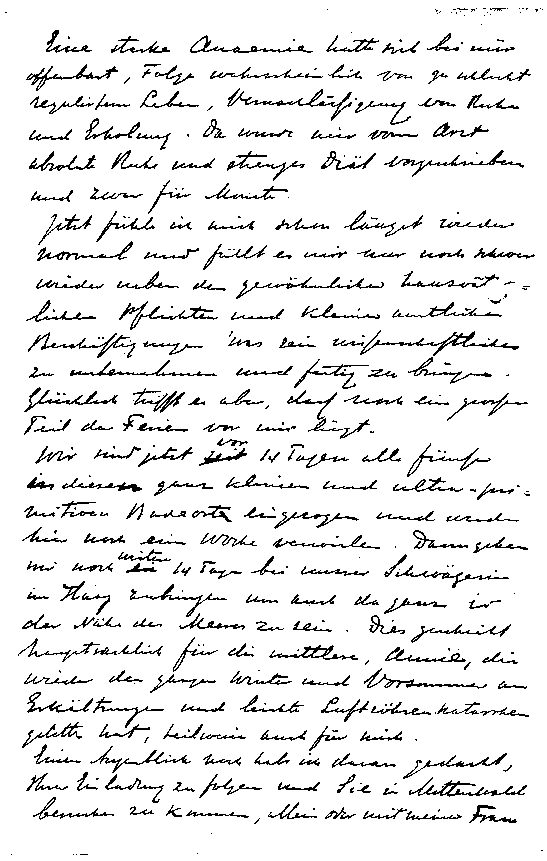 Eine starke Anaemie hatte sich bei mir
offenbart, Folge wahrscheinlich von zu schlecht
regulirtem Leben, Vernachläßigung von Ruhe
und Erholung. Da wurde mir vom Arzt
absolute Ruhe und strenges Diät vorgeschrieben
und zwar für Monate.
Jetzt fühle ich mich schon längst wieder
normal und fällt es mir nur noch schwer
wieder neben den gewöhnlichen hausvät-
lichen Pflichten und kleinen amtlichen
Beschäftigungen 'was rein wissenschaftliches
zu unternehmen und fertig zu bringen.
Glücklich trifft es aber, dass noch ein grosser
Teil der Ferien vor mir liegt.
Wir sind jetzt vor 14 Tagen alle fünf
in diesen ganz kleinen und ultra-pri-
mitiven Badeorte eingezogen und werden
hier noch eine Woche verweilen. Dann gehen
wir noch weitere 14 Tage bei unserer Schwägerin
im Haag zubringen um auch da ganz in
der Nähe des Meeres zu sein. Dies geschieht
hauptsächlich für die mittlere, Annie, die
wieder den ganzen Winter und Vorsommer an
Erkältungen und leichte Luftröhrenkatarrhen
gelitten hat, teilweise auch für mich.
Einen Augenblick noch habe ich daran gedacht,
Ihre Einladung zu folgen und Sie in Mittenwald
besuchen zu kommen, allein oder mit meiner Frau